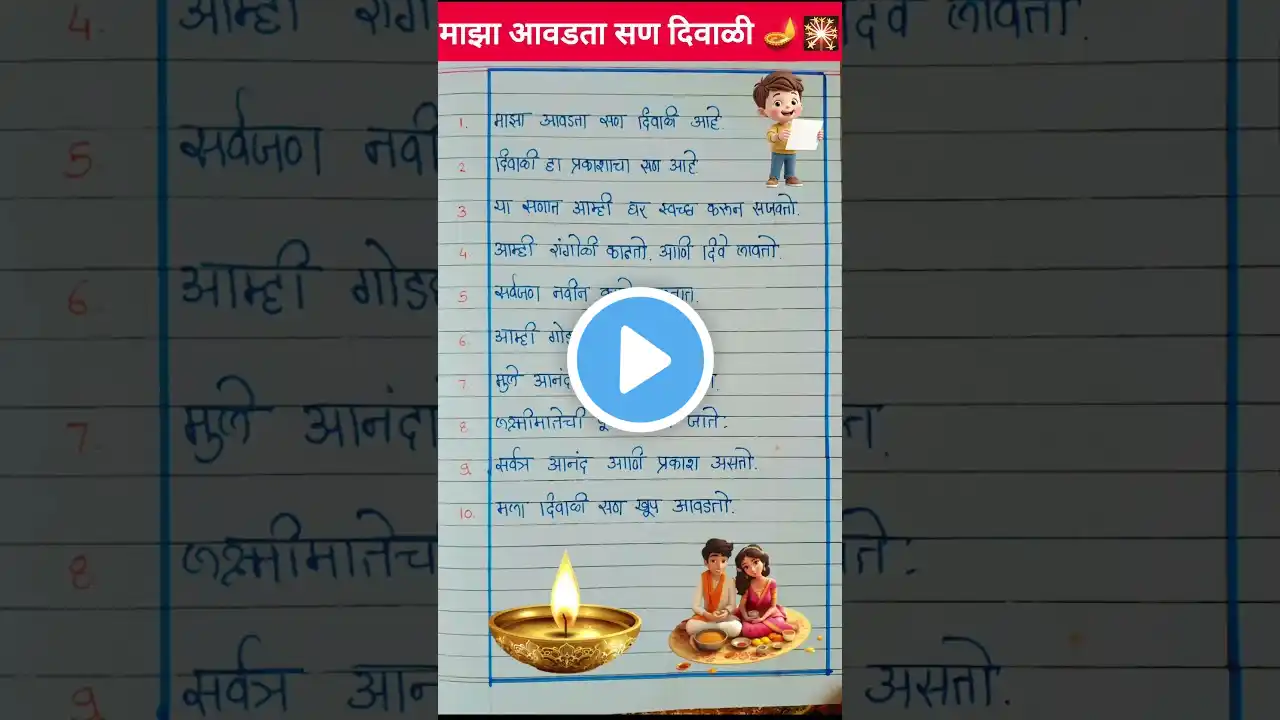 माझा आवडता सण दिवाळी
1. माझा आवडता सण दिवाळी आहे.
2 दिवाळी हा प्रकाशाचा सण आहे
3 या सणात आम्ही घर स्वच्छ करून सजवतो.
4 आम्ही रांगोळी काढतो. आणि दिवे लावतो.
5 सर्वजण नवीन
6 आम्ही
7 मुले
8 लक्ष्मीमातेची जाते.
9 सर्वत्र आनंद आणि प्रकाश असतो.
10. मला दिवाळी सण खूप आवडतो.